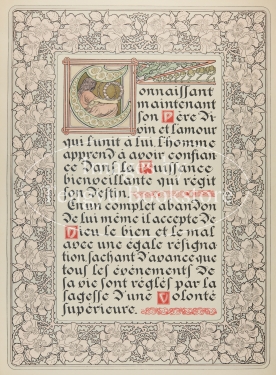 Connaissant
maintenant
son Père Di
vin et l'amour
qui l'unit à lui, l'homme
apprend à avoir confian
ce dans la Puissance
bienveillante qui régit
son Destin.
En un complet abandon
de lui même il accepte de
Dieu le bien et le mal
avec une égale résigna
tion, sachant d'avance que
tous les événements de
la vie sont réglés par la
sagesse d'une Volonté
supérieure.